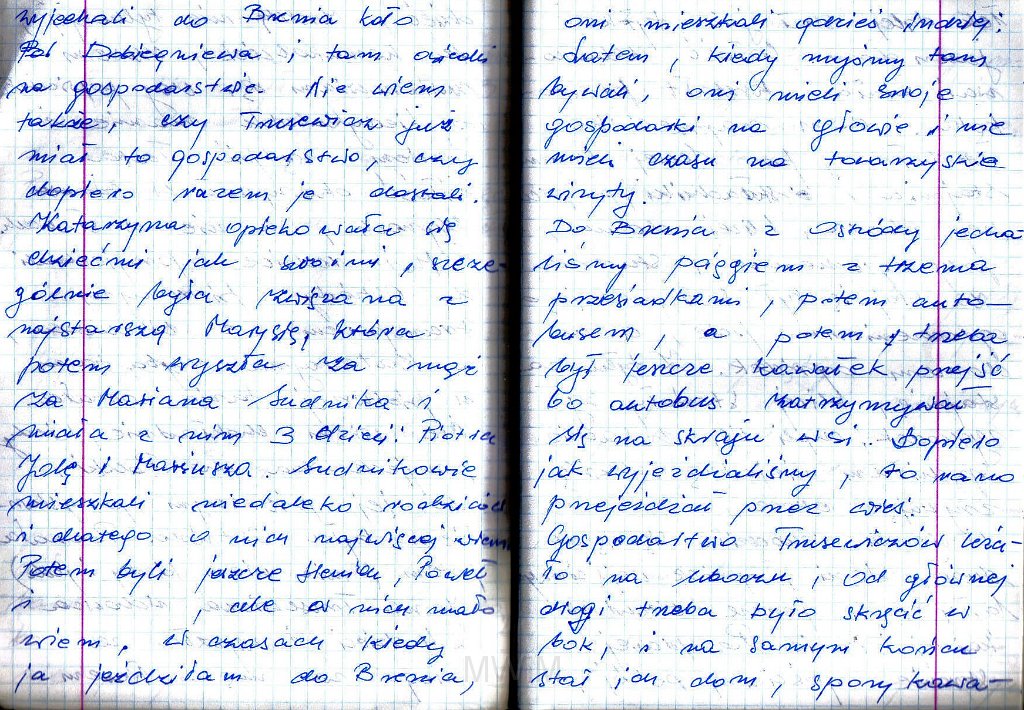 wyjechali do Brenia koło
Dobiegniewa i tam osiedli
na gospodarstwie. Nie wiem
także, czy Trusewicz już
miał to gospodarstwo, czy
dopiero razem je dostali.
Katarzyna opiekowała się
dziećmi jak swoimi, szcze-
gólnie była związana z
najstarszą Marysią, która
potem wyszła za mąż
za Mariana Sudnika i
miała z nim 3 dzieci: Piotra
Jolę i Mariusza. Sudnikowie
mieszkali niedaleko rodziców
i dlatego o nich najwięcej wiem
Potem byli jeszcze Henia, Paweł
i , ale o nich mało
wiem. W czasach kiedy
ja jeździłam do Brenia,
oni mieszkali gdzieś indziej.
Latem, kiedy myśmy tam
bywali, oni mieli swoje
gospodarki na głowie i nie
mieli czasu na towarzyskie
wizyty.
Do Brenia z Ostródy jecha-
liśmy pociągiem z trzema
przesiadkami, potem auto-
busem, a potem trzeba
był jeszcze kawałek przejść
bo autobus zatrzymywał
się na skraju wsi. Dopiero
jak wyjeżdżaliśmy, to rano
przejeżdżał przez wieś.
Gospodarstwo Trusewiczów leża-
ło na uboczu, od głównej
drogi trzeba było skręcić w
bok, i na samym końcu
stał ich dom, spory kawa-
MWM